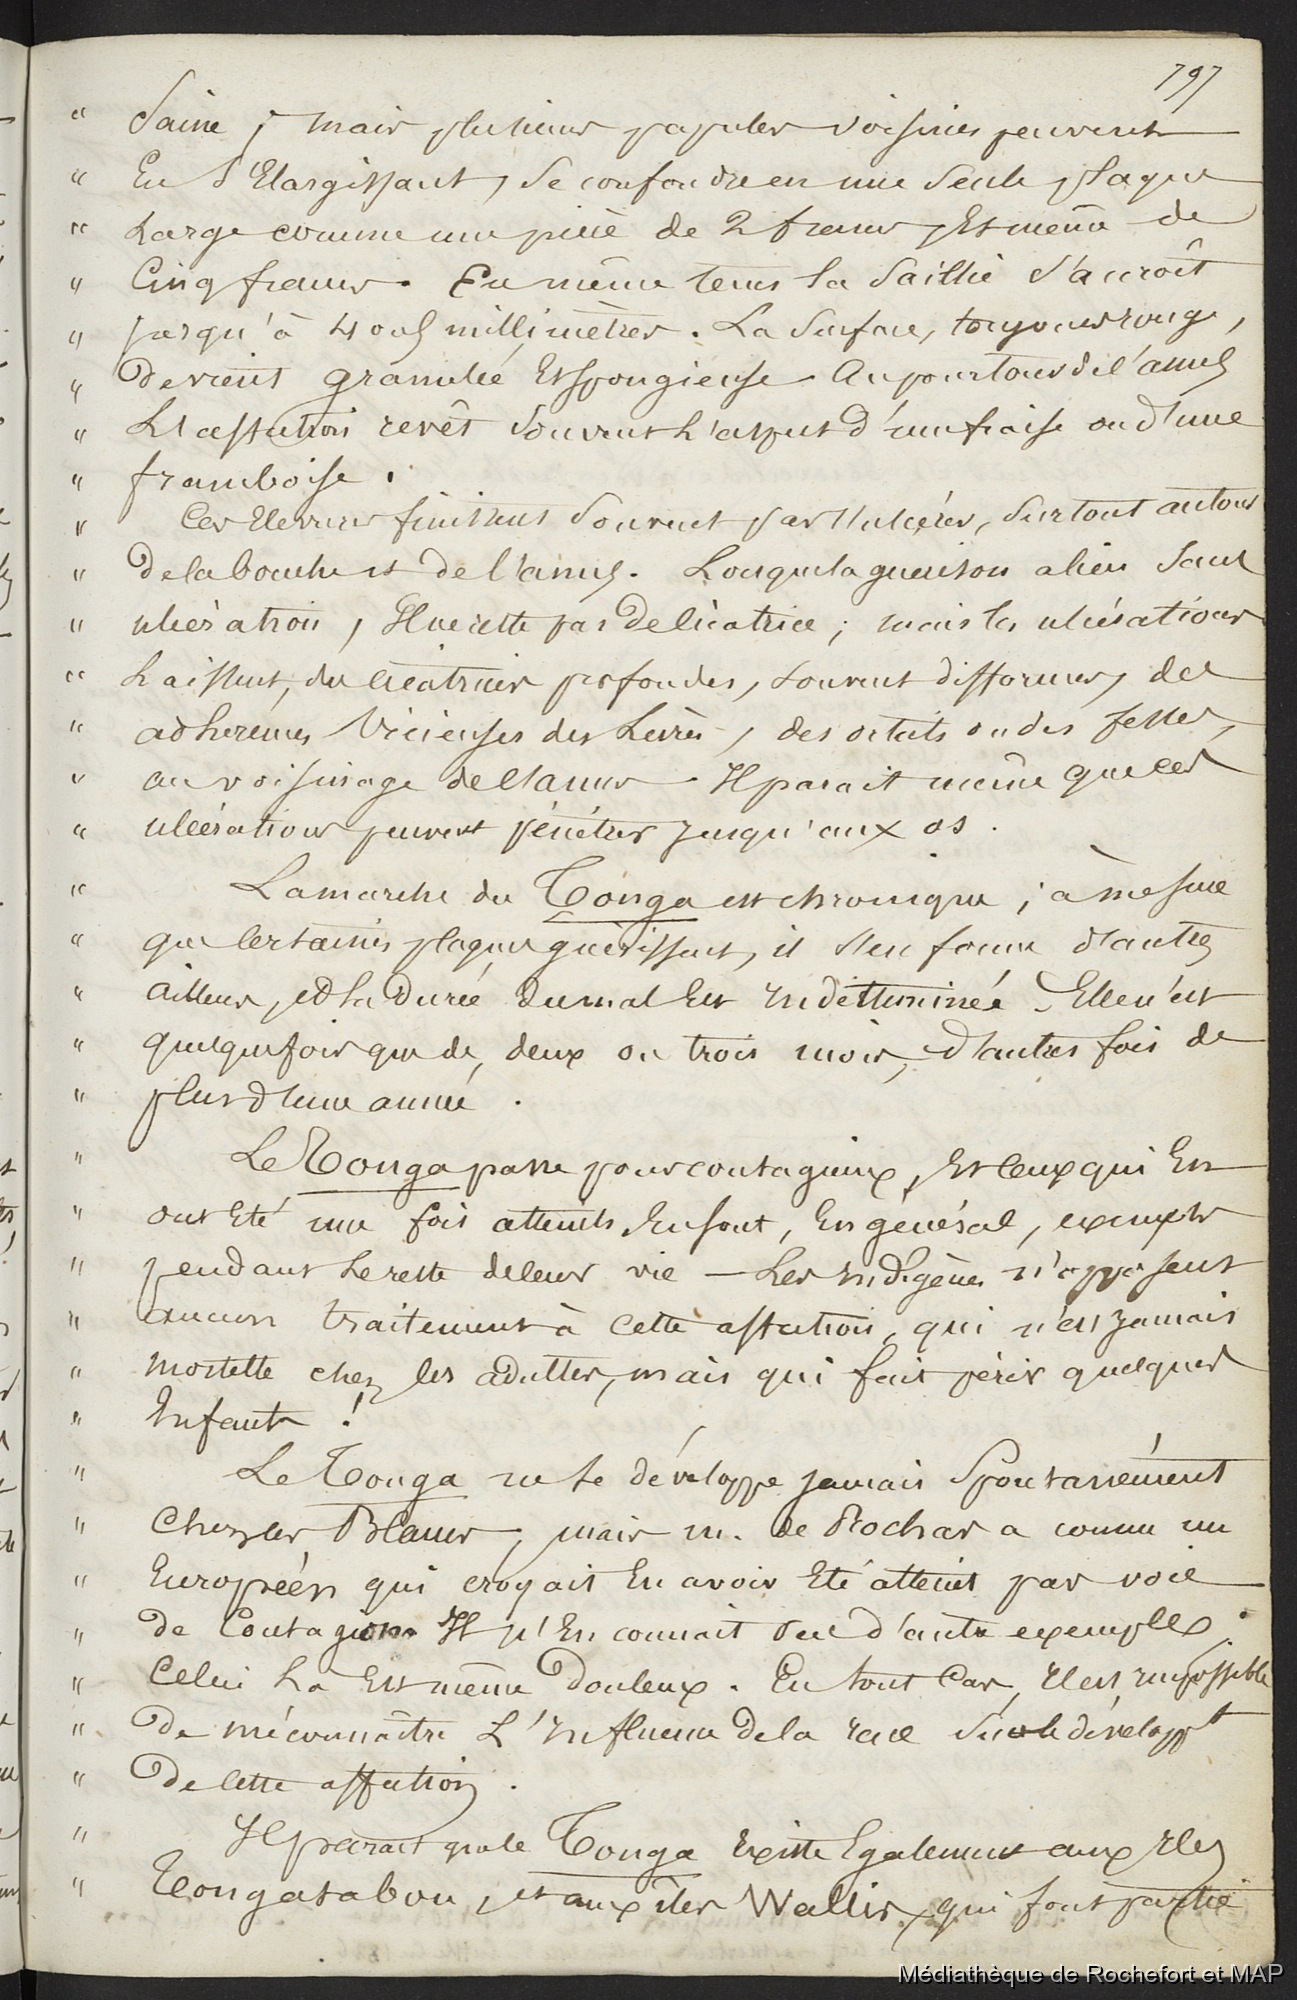 797
" Saine, mais plusieurs papules voisines peuvent
" En S'Elargissant, Se confondre en une Seule plaque
" Large comme une pièce de 2 francs, Et même de
" Cinq francs. En même tems la Saillie S'accroît
" jusqu'à 4 ou 5 millimètres. La Surface, toujours rouge,
" devient granulée Et Spongieuse. Au pourtour de l'anus
" L'affection revêt Souvent L'aspect d'une fraise ou d'une
" framboise.
" Ces Elevures finissent Souvent par S'ulcérer, Surtout autour
" de la bouche et de l'anus. Lorsque la guérison a lieu Sans
" ulcération, Il ne reste pas de cicatrice; mais les ulcérations
" Laissent, des cicatrices profondes, Souvent difformes, des
" adhérences Vicieuses des Lèvres, des orteils ou des fesses,
" au voisinage de l'anus. Il parait même que ces
" ulcérations peuvent pénétrer jusqu'aux os.
" La marche du Tonga est chronique; à mesure
" que Certaines plaques guérissent, il S'en forme d'autres
" ailleurs, et la Durée du mal Est Indéterminée. Elle n'est
" quelquefois que de, deux ou trois mois, d'autres fois de
" plus d'une année.
" Le Tonga passe pour contagieux, Et Ceux qui En
" ont Eté une fois atteints, En Sont, En général, exempts
" pendant Le reste de leur vie — Les Indigènes n'opposent
" aucun traitement à Cette affection, qui n'est jamais
" mortelle chez les adultes, mais qui fait périr quelques
" Enfants !
" Le Tonga ne Se développe jamais Spontanément
" Chez les Blancs, mais m. de Rochas a connu un
" Européen qui croyait En avoir Eté atteint par voie
" de Contagion. Il n'En connait Pas d'autre exemple.
" Celui Là Est même Douteux. En tout Cas, Il est impossible
" De méconnaître L'Influence de la race Sur le développt
" De Cette affection.
" Il parait que le Tonga Existe Egalement aux Iles
" Tongatabou, et aux îles Wallis, qui font partie
Médiathèque de Rochefort et MAP